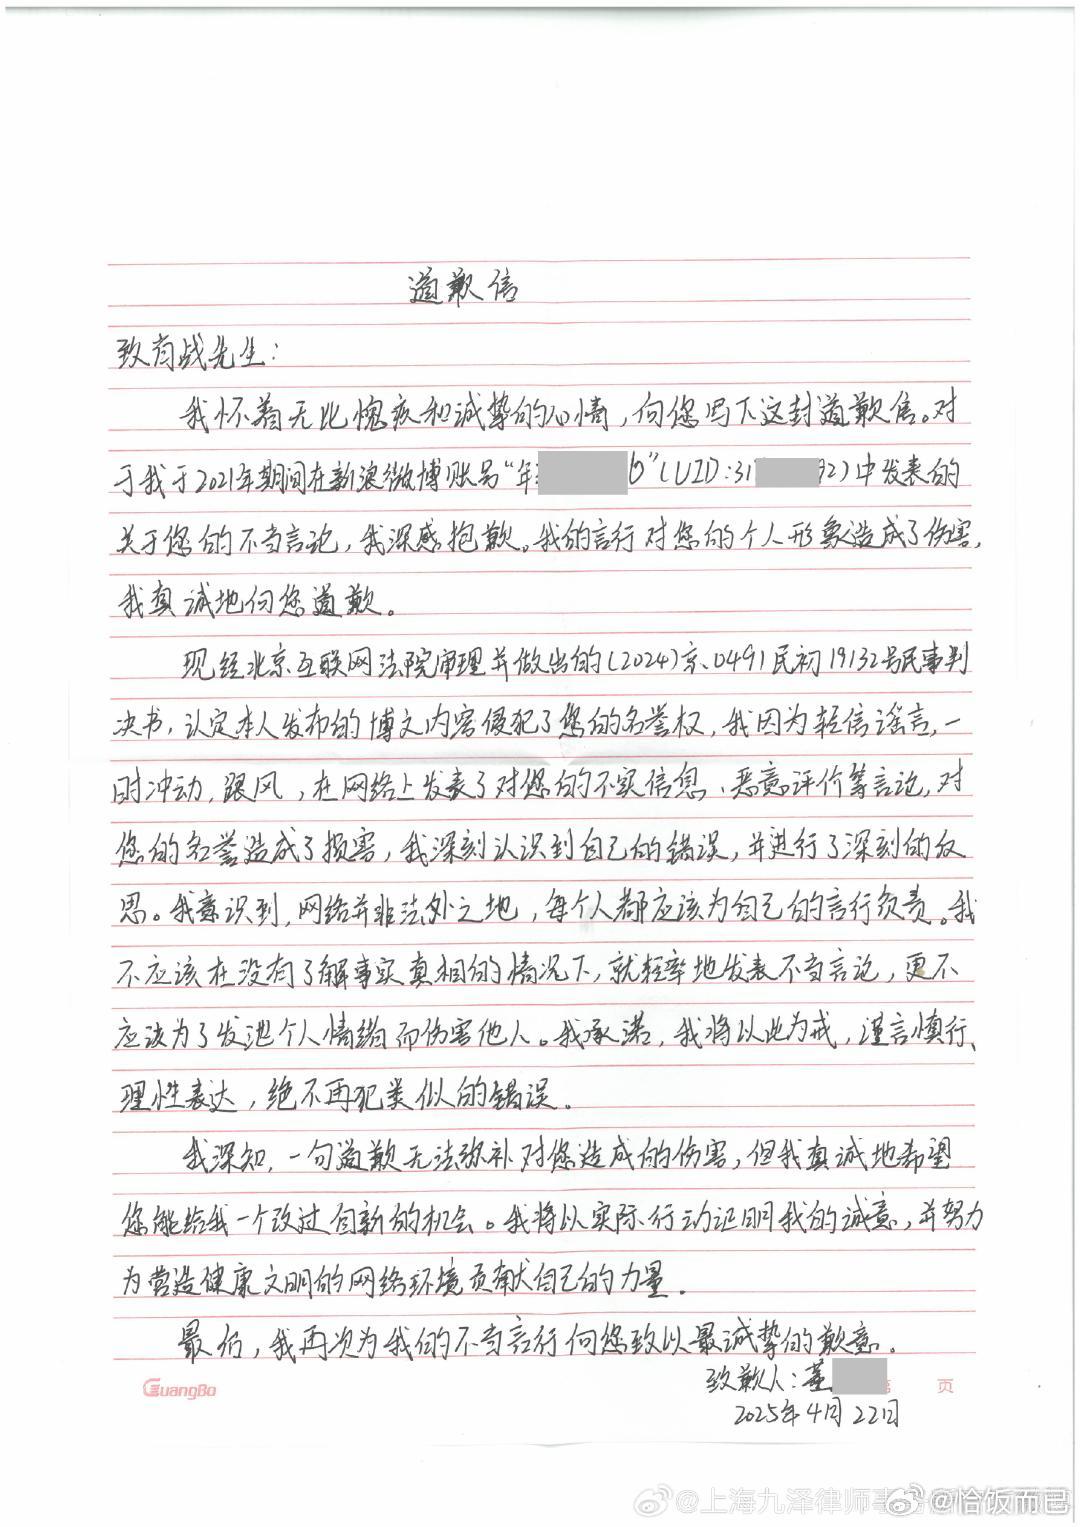 道歉信
致肖战先生：
我怀着无比愧疚和诚挚的心情，向您写下这封道歉信。对
于我于2021年期间在新浪微博账号“年 ”（UID：31 92）中发表的
关于您的不当言论，我深感抱歉。我的言行对您的个人形象造成了伤害，
我真诚地向您道歉。
现经北京互联网法院审理并做出的（2024）京0491民初19132号民事判
决书，认定本人发布的博文内容侵犯了您的名誉权，我因为轻信谣言，一
时冲动，跟风，在网络上发表了对您的不实信息、恶意评价等言论，对
您的名誉造成了损害，我深刻认识到自己的错误，并进行了深刻的反
思。我意识到，网络并非法外之地，每个人都应该为自己的言行负责。我
不应该在没有了解事实真相的情况下，就轻率地发表不当言论，更不
应该为了发泄个人情绪而伤害他人。我承诺，我将以此为戒，谨言慎行、
理性表达，绝不再犯类似的错误。
我深知，一句道歉无法弥补对您造成的伤害，但我真诚地希望
您能给我一个改过自新的机会。我将以实际行动证明我的诚意，并努力
为营造健康文明的网络环境贡献自己的力量。
最后，我再次为我的不当言行向您致以最诚挚的歉意。
致歉人：董
GuangBo 页
2025年4月22日
@上海九泽律师事 @恰饭而已